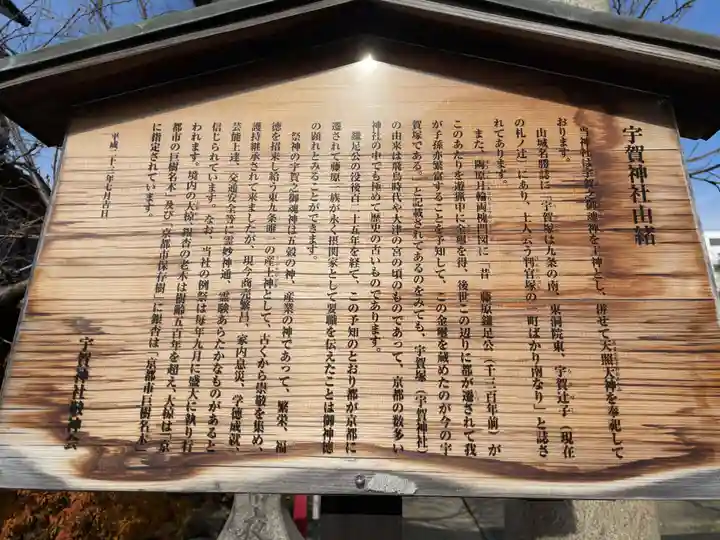 宇賀神社由緒
当神社は宇賀之御魂神を主神とし、併せて天照大神を奉祀して
おります。
山城名勝誌に「宇賀塚は九条の南、東洞院東、宇賀辻子（現在
の札ノ辻）にあり、土人云う狎官塚の二町ばかり南なり」と誌さ
れてあります。
また、「陶原月輪両棟門図に「昔 藤原鎌足公（千三百年前）が
このあたりを遊猟中に金璽を得、後世この辺りに都が遷されて我
が子孫亦繁富することを予知して、この金璽を蔵めたのが今の宇
賀塚である。」と記載されてあるのをみても、宇賀塚（宇賀神社）
の由来は飛鳥時代や大津の宮の頃のものであって、京都の数多い
神社の中でも極めて歴史の古いものであります。
鎌足公の没後百二十五年を経て、この予知のとおり都が京都に
遷されて藤原一族が永く摂関家として要職を伝えたことは御神徳
の顕れと云えることができます。
祭神の宇賀之御魂神は五穀の神、産業の神であって、繁栄、福
徳を招来し給う東九条唯一の産土神として、古くから崇敬を集め、
護持継承されて来ましたが、現今商売繁昌、家内息災、学徳成就、
芸能上達、交通安全等に霊妙神通、霊験あらたかなものがあると
信じられています。なお、当社の例祭は毎年九月に盛大に執り行
われます。境内の大椋、銀杏の老木は樹齢五百年を超え、大椋は「京
都市の巨樹名木」及び「京都市保存樹」に銀杏は「京都市巨樹名木」
に指定されています。
平成二十二年七月五日
宇賀神社献神会